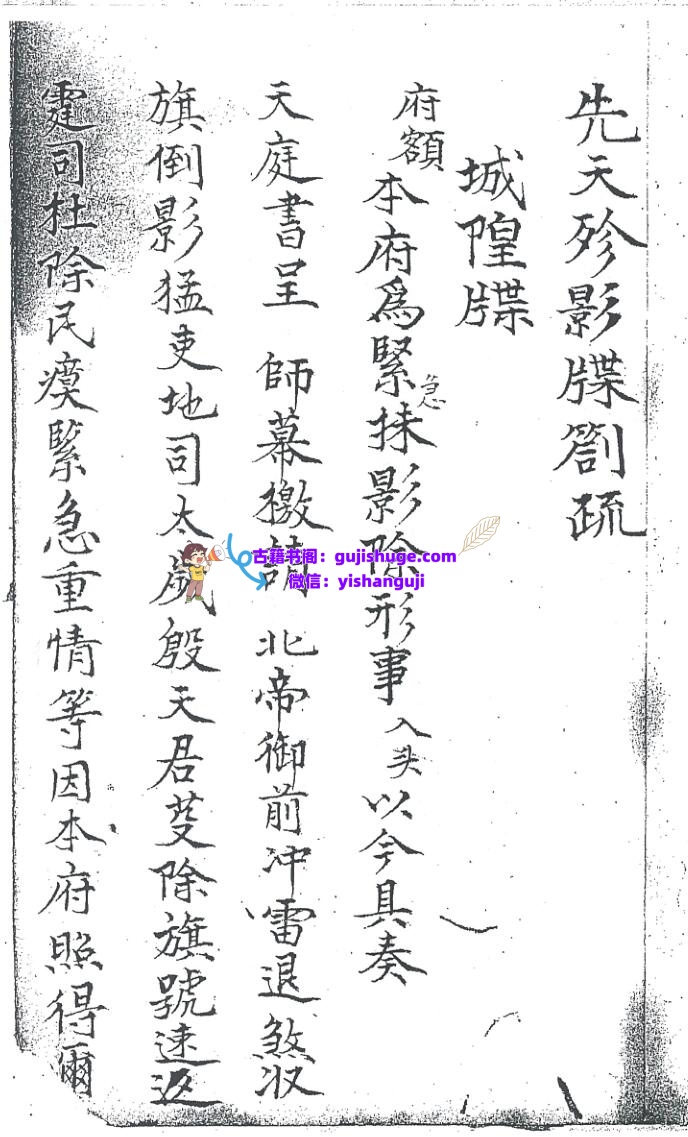 先天殄影牒劄疏
城隍牒
府額 本府為緊急抹影除形事 入头 以今具奏
天庭書呈 師幕檄請 北帝御前冲雷退煞收
旗倒影猛吏地司太歲殷天君芟除旗號速返
霆司杜除民瘼緊急重情等因本府照得爾
古籍书阁：gujishuge.com
微信：yishanguji